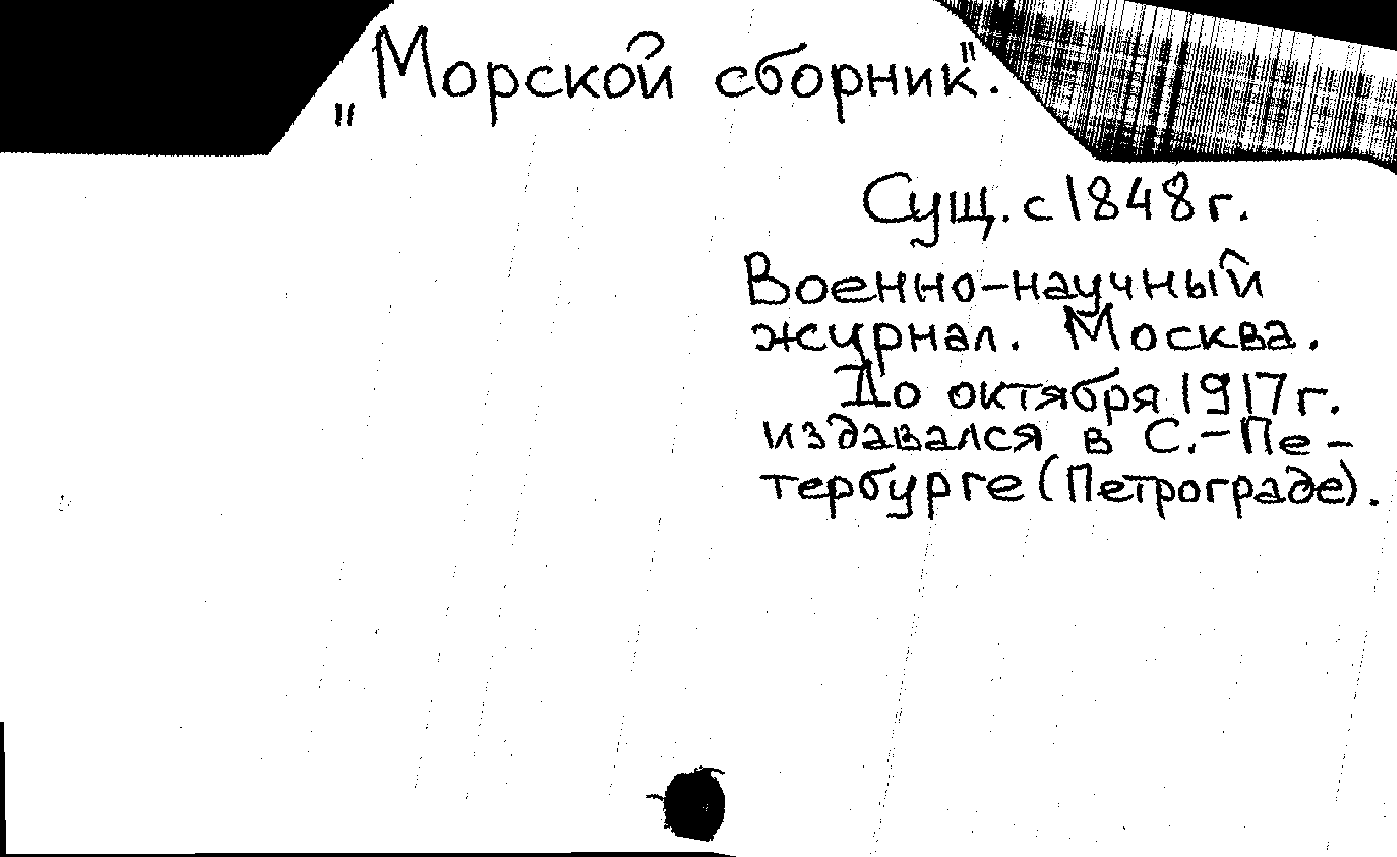 "Морской сборник".
Сущ. с 1848 г.
Военно-научный
журнал. Москва.
До октября 1917 г.
издавался в С.-Пе-
тербурге (Петрограде).